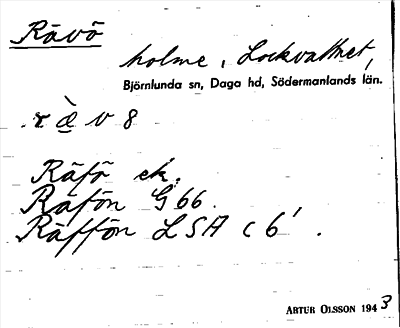 Rävö
holme, Lockvattnet,
Björnlunda sn, Daga hd, Södermanlands län.
Räfö ek.
Räfön G 66.
Räffön LSA c 6'.
ARTUR OLSSON 1943